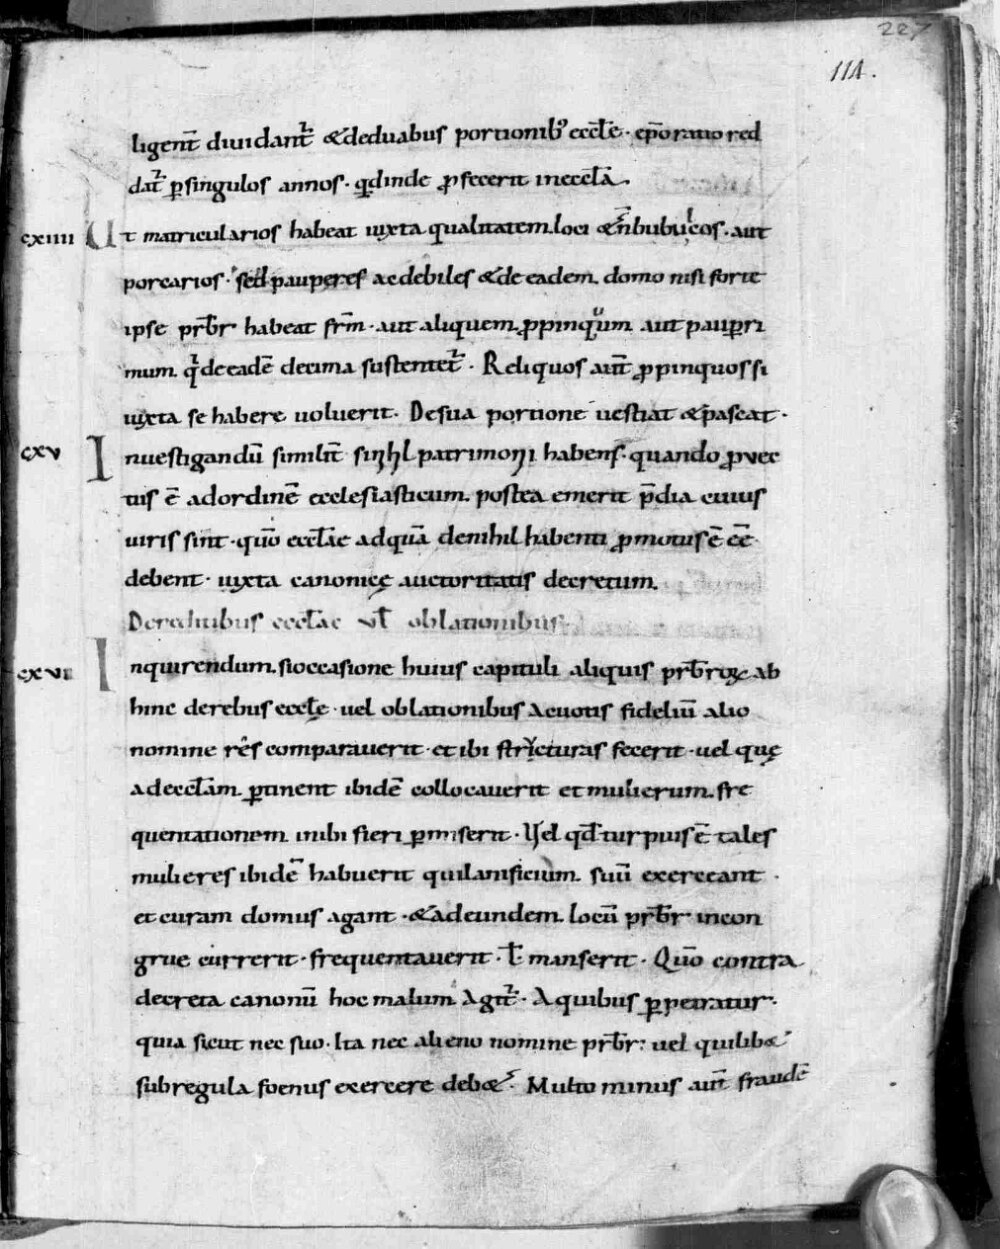 227
114.
ligent̄ diuidant᷑ &deduabus portionib᷒ eccl̄e · ep̄o ratio red
dat᷑ p̲singulos annos · qd̄inde ꝓfecerit ineccl̄a.
cxiiii Ut matricularios habeat iuxta qualitatem loci & n̄ bubulcos · aut
porcarios · sed pauperes ac debiles &de eadem domo nisi forte
ipse pr̄br habeat fr̄m · aut aliquem ꝓpinquum aut paup̲ri
mum q de eadē decima sustentet᷑ · Reliquos aut̄ ꝓpinquos si
iuxta se habere uoluerit · De sua portione uestiat &pascat ·
cxv Inuestigandū similit̄ si nihl patrimonii habens · quando ꝓuec
tus ē ad ordinē ecclesiasticum postea emerit p̄dia cuius
iuris sint · quo᷒ eccl̄ae ad quā de nihil habenti ꝓmotus ē eē
debent · iuxta canonicę auctoritatis decretum.
De rebus eccl̄ae vl̄ oblationibus
cxvi Inquirendum si occasione huius capituli aliquis pr̄br rogę ab
hinc de rebus eccl̄ę · uel oblationibus ac uotis fideliū alio
nomine res comparauerit · et ibi stricturas fecerit · uel quę
ad eccl̄am p̲tinent ibidē collocauerit et mulierum fre
quentationem inibi fieri p̲miserit · Vel qd̄ turpius ē tales
mulieres ibidē habuerit qui lanificium suū exerceant ·
et curam domus agant · &ad eundem locū pr̄br incon
grue currerit · frequentauerit · l̄ manserit · Quō contra
decreta canonū hoc malum agit᷑ · A quibus p̲petratur ·
quia sicut nec suo · Ita nec alieno nomine pr̄br · uel quilib&
sub regula foenus exercere deb& · Multo minus aut̄ fraudē